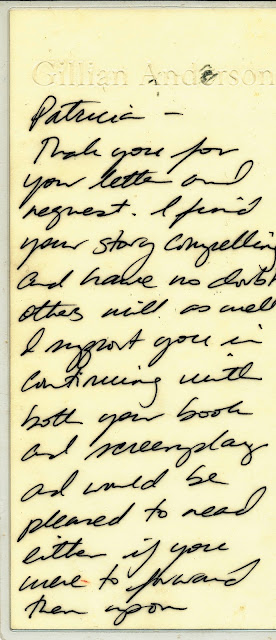 Gillian Anderson
Patricia –
Thank you for
your letter and
request. I find
your story compelling
and have no doubt
others will as well
I support you in
continuing with
both your book
and screenplay
and would be
pleased to read
either if you
were to forward
them upon